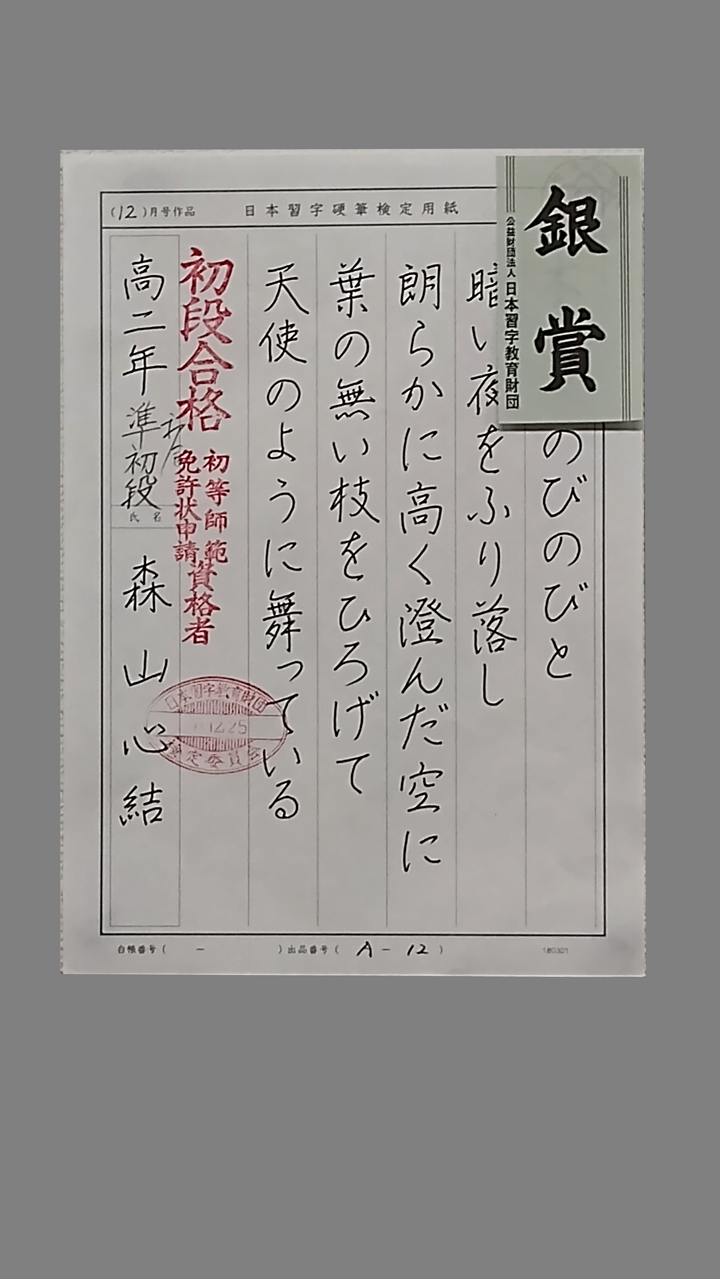 (12)月号作品
日本習字硬筆検定用紙
銀賞
公益財団法人 日本習字教育財団
のびのびと
暗い夜をふり落し
朗らかに高く澄んだ空に
葉の無い枝をひろげて
天使のように舞っている
初段合格
初等師範資格者
免許状申請
高二年 準初段
氏名
森山心結
日本習字教育財団
12.25
検定委員会
台帳番号( - )出品番号( A-12 )
180301